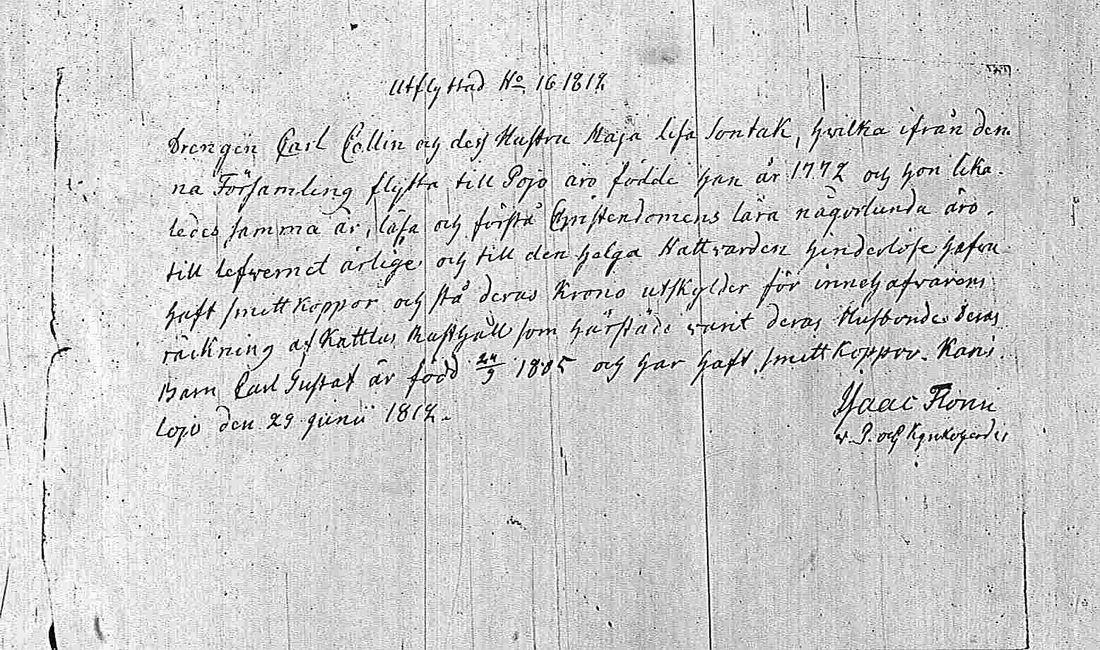 Utflyttad No 16 1812
Drengen Carl Collin och dess Hustru Maja Lisa Sontak, hvilka ifrån den
na Församling flytta till Pojo äro födde han år 1772 och hon lika-
ledes samma år, läsa och förstå Christendomens lära någorlunda äro
till lefwernet ärlige och till den helga Nattvarden hinderlöse hafva
haft smittkoppor och stå deras Krono utskylder för innehafvarens
räckning af Kattlus Rusthåll som härstädes varit deras Husbonde. Deras
Barn Carl Gustaf är född 24/9 1805 och har haft smittkoppor. Karis
Lojo den 29 Junii 1812.
Isaac
v. P. och